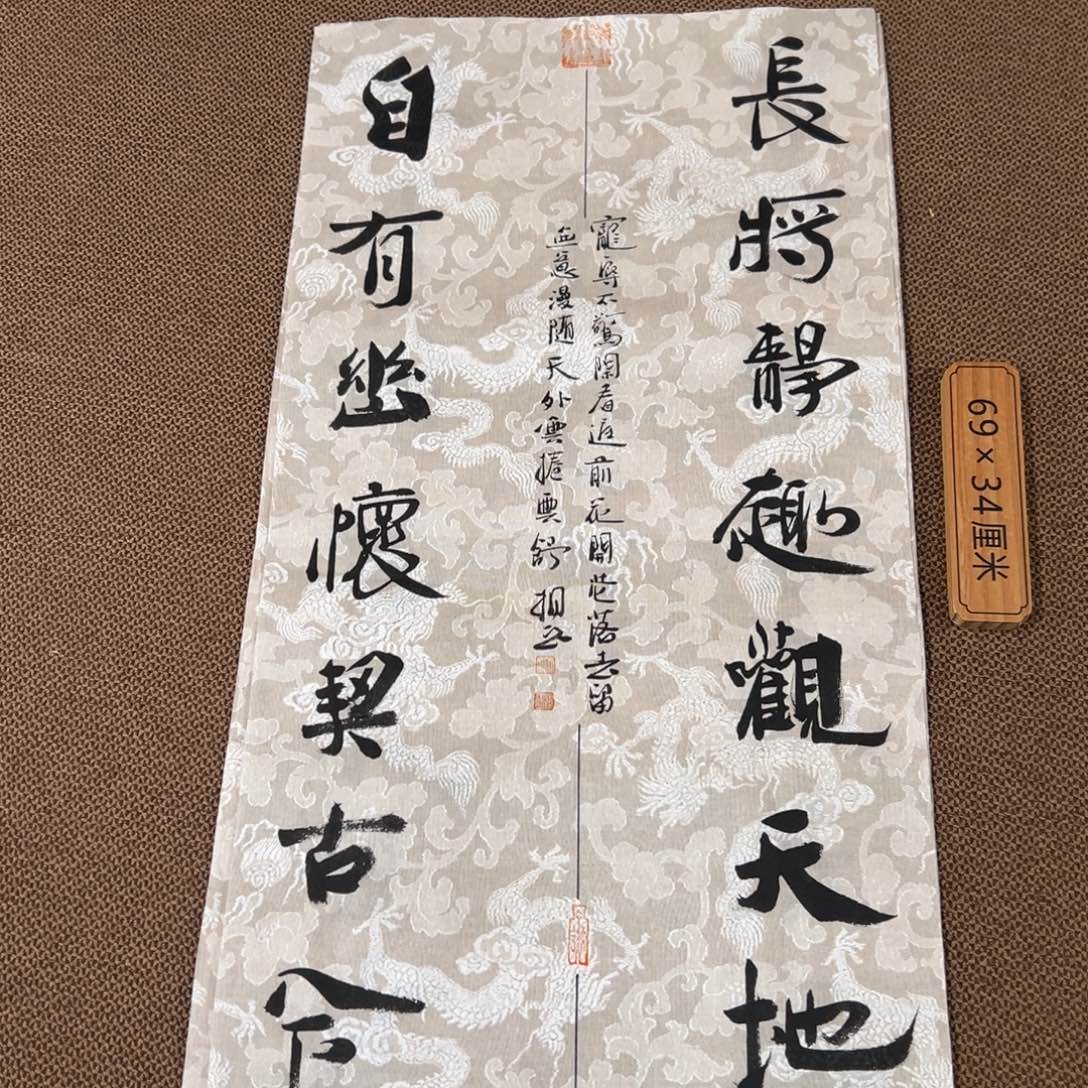 長將靜趣觀天地
寵辱不驚閑看庭前花開花落去留
無意漫隨天外雲捲雲舒
自有幽懷契古今
69×34厘米